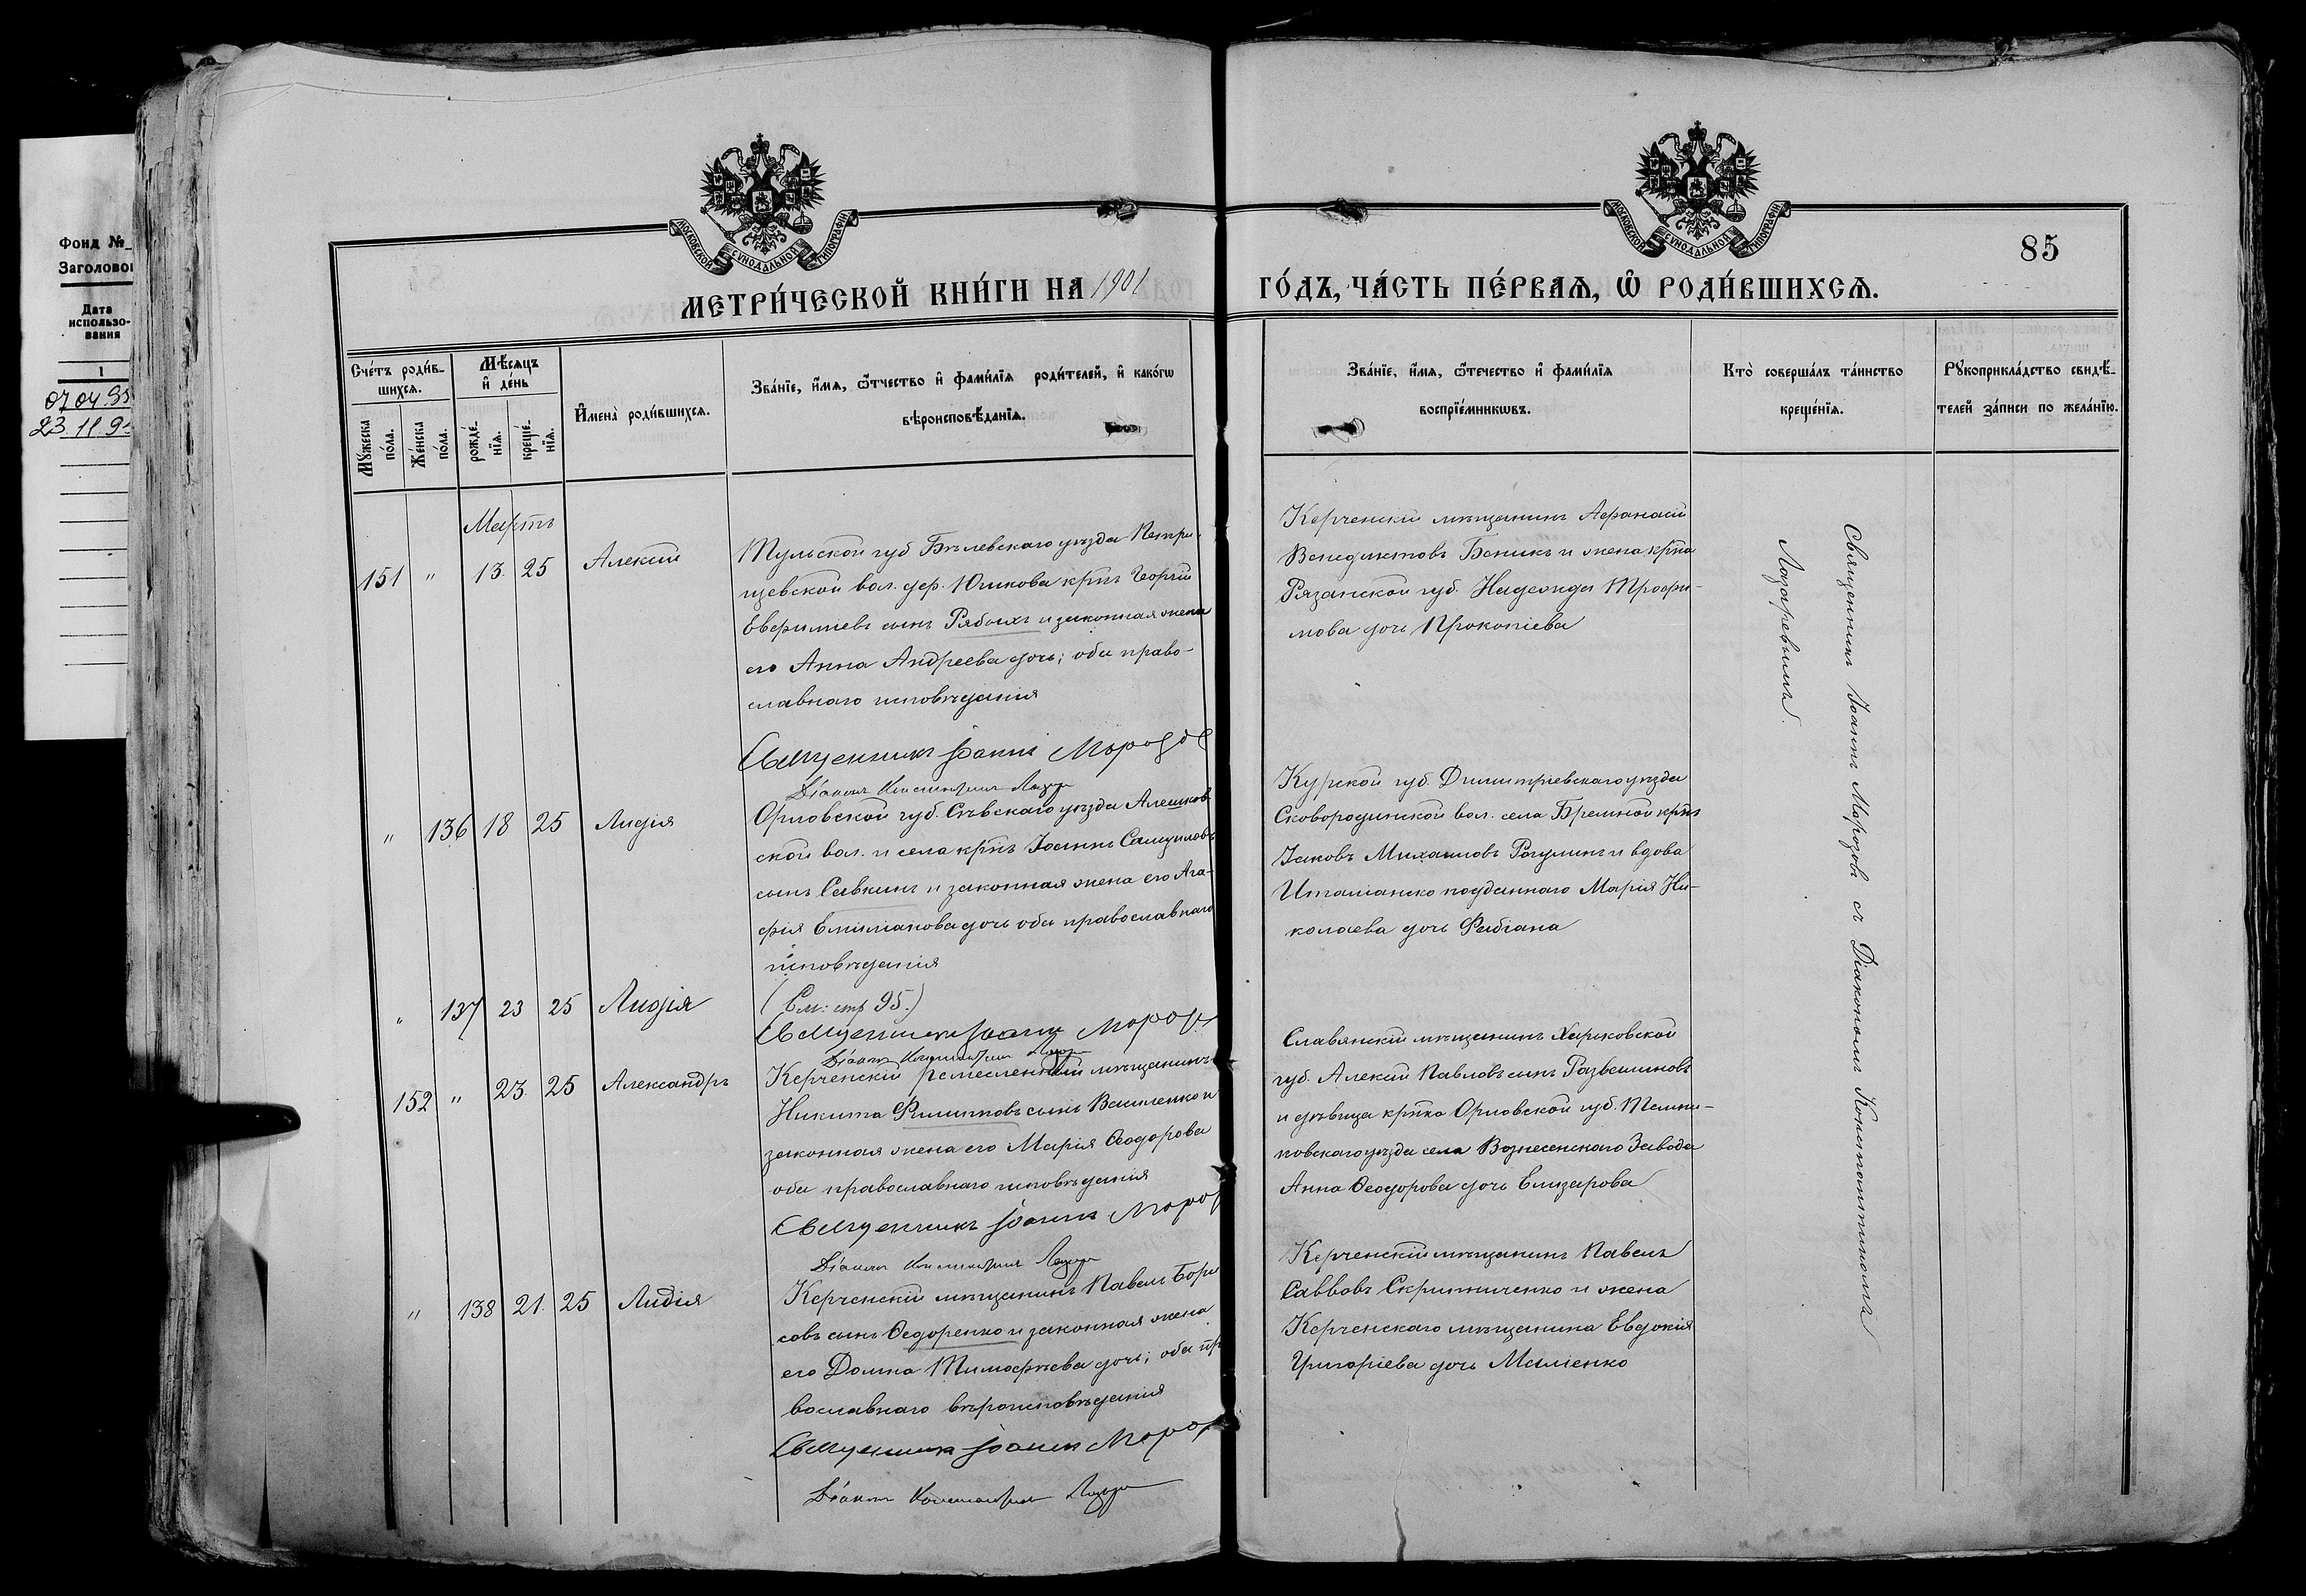 Фонд №
Заголово
Дата
использо-
вания
1
07 04 95
23 11 9
МОСКОВСКОЙ СУНОДАЛЬНОЙ ТИПОГРАФІИ
МОСКОВСКОЙ СУНОДАЛЬНОЙ ТИПОГРАФІИ
85
МЕТРИ́ЧЕСКОЙ КНИ́ГИ НА 1901 ГО́ДЪ, ЧА́СТЬ ПЕ́РВАѦ, Ѽ РОДИ́ВШИХСѦ.
Сче́тъ роди́в-
шихсѧ.
Мꙋ́жеска
по́ла.
Же́нска
по́ла.
Мѣ́сѧцъ
и҆ де́нь
рожде́-
нїѧ.
креще́-
нїѧ.
И҆мена̀ роди́вшихсѧ.
Зва́нїе, и҆́мѧ, ѻ҆́тчество и҆ фами́лїѧ роди́телей, и҆ како́гѡ
вѣроисповѣ́данїѧ.
Зва́нїе, и҆́мѧ, ѻ҆те́чество и҆ фами́лїѧ
воспрїе́мникѡвъ.
Кто̀ соверша́лъ та́инство
креще́нїѧ.
Рꙋкоприкла́дство свидѣ́-
телей за́писи по жела́нїю.
Мартъ
151 " 13. 25 Алексій
Тульской губ Бѣлевскаго уѣзда Петри-
щевской вол. дер. Юшкова крнъ Георгій
Евфиміевъ сынъ Рябыхъ и законная жена
его Анна Андреева дочь; оба право-
славнаго исповѣданія
Священникъ Іоаннъ Морозов
Діаконъ Константинъ Лазар
Керченскій мѣщанинъ Афанасій
Венедиктовъ Беникъ и жена крна
Рязанской губ. Надежда Трофи-
мова дочь Прокопіева
" 136 18 25 Лидія
Орловской губ. Сѣвскаго уѣзда Алешков
ской вол. и села крнъ Іоаннъ Самуиловъ
сынъ Савкинъ и законная жена его Ага-
фія Емиліанова дочь оба православнаго
исповѣданія
Курской губ. Димитріевскаго уѣзда
Сковородинской вол. села крнъ
Іаковъ Михаиловъ и вдова
Италіанско подданнаго Марія Ни-
колаева дочь Фабіана
" 137 23 25 Лидія
(См: стр 95.)
Священникъ Іоаннъ Мороз
Діаконъ Константинъ Лазар
152 " 23. 25 Александръ
Керченскій ремесленный мѣщанинъ
Никита Филипповъ сынъ Василенко и
законная жена его Марія Ѳеодорова
оба православнаго исповѣданія
Священникъ Іоаннъ Мороз
Діаконъ Константинъ Лазар
Славянскій мѣщанинъ Харьковской
губ. Алексій Павловъ сынъ
и дѣвица крнка Орловской губ. Темни-
ковскаго уѣзда села Вознесенскаго Завода
Анна Ѳеодорова дочь Елизарова
" 138 21. 25 Лидія
Керченскій мѣщанинъ Павелъ Бори
совъ сынъ Ѳедоренко и законная жена
его Домна Тимофѣева дочь; оба пр
вославнаго вѣроисповѣданія
Священникъ Іоаннъ Мороз
Діаконъ Константинъ Лазар
Керченскій мѣщанинъ Павелъ
Саввовъ Скрипниченко и жена
Керченскаго мѣщанина Евдокія
Григоріева дочь Маліенко
Священникъ Іоаннъ Морозовъ съ Діакономъ Константиномъ
Лазаревымъ.